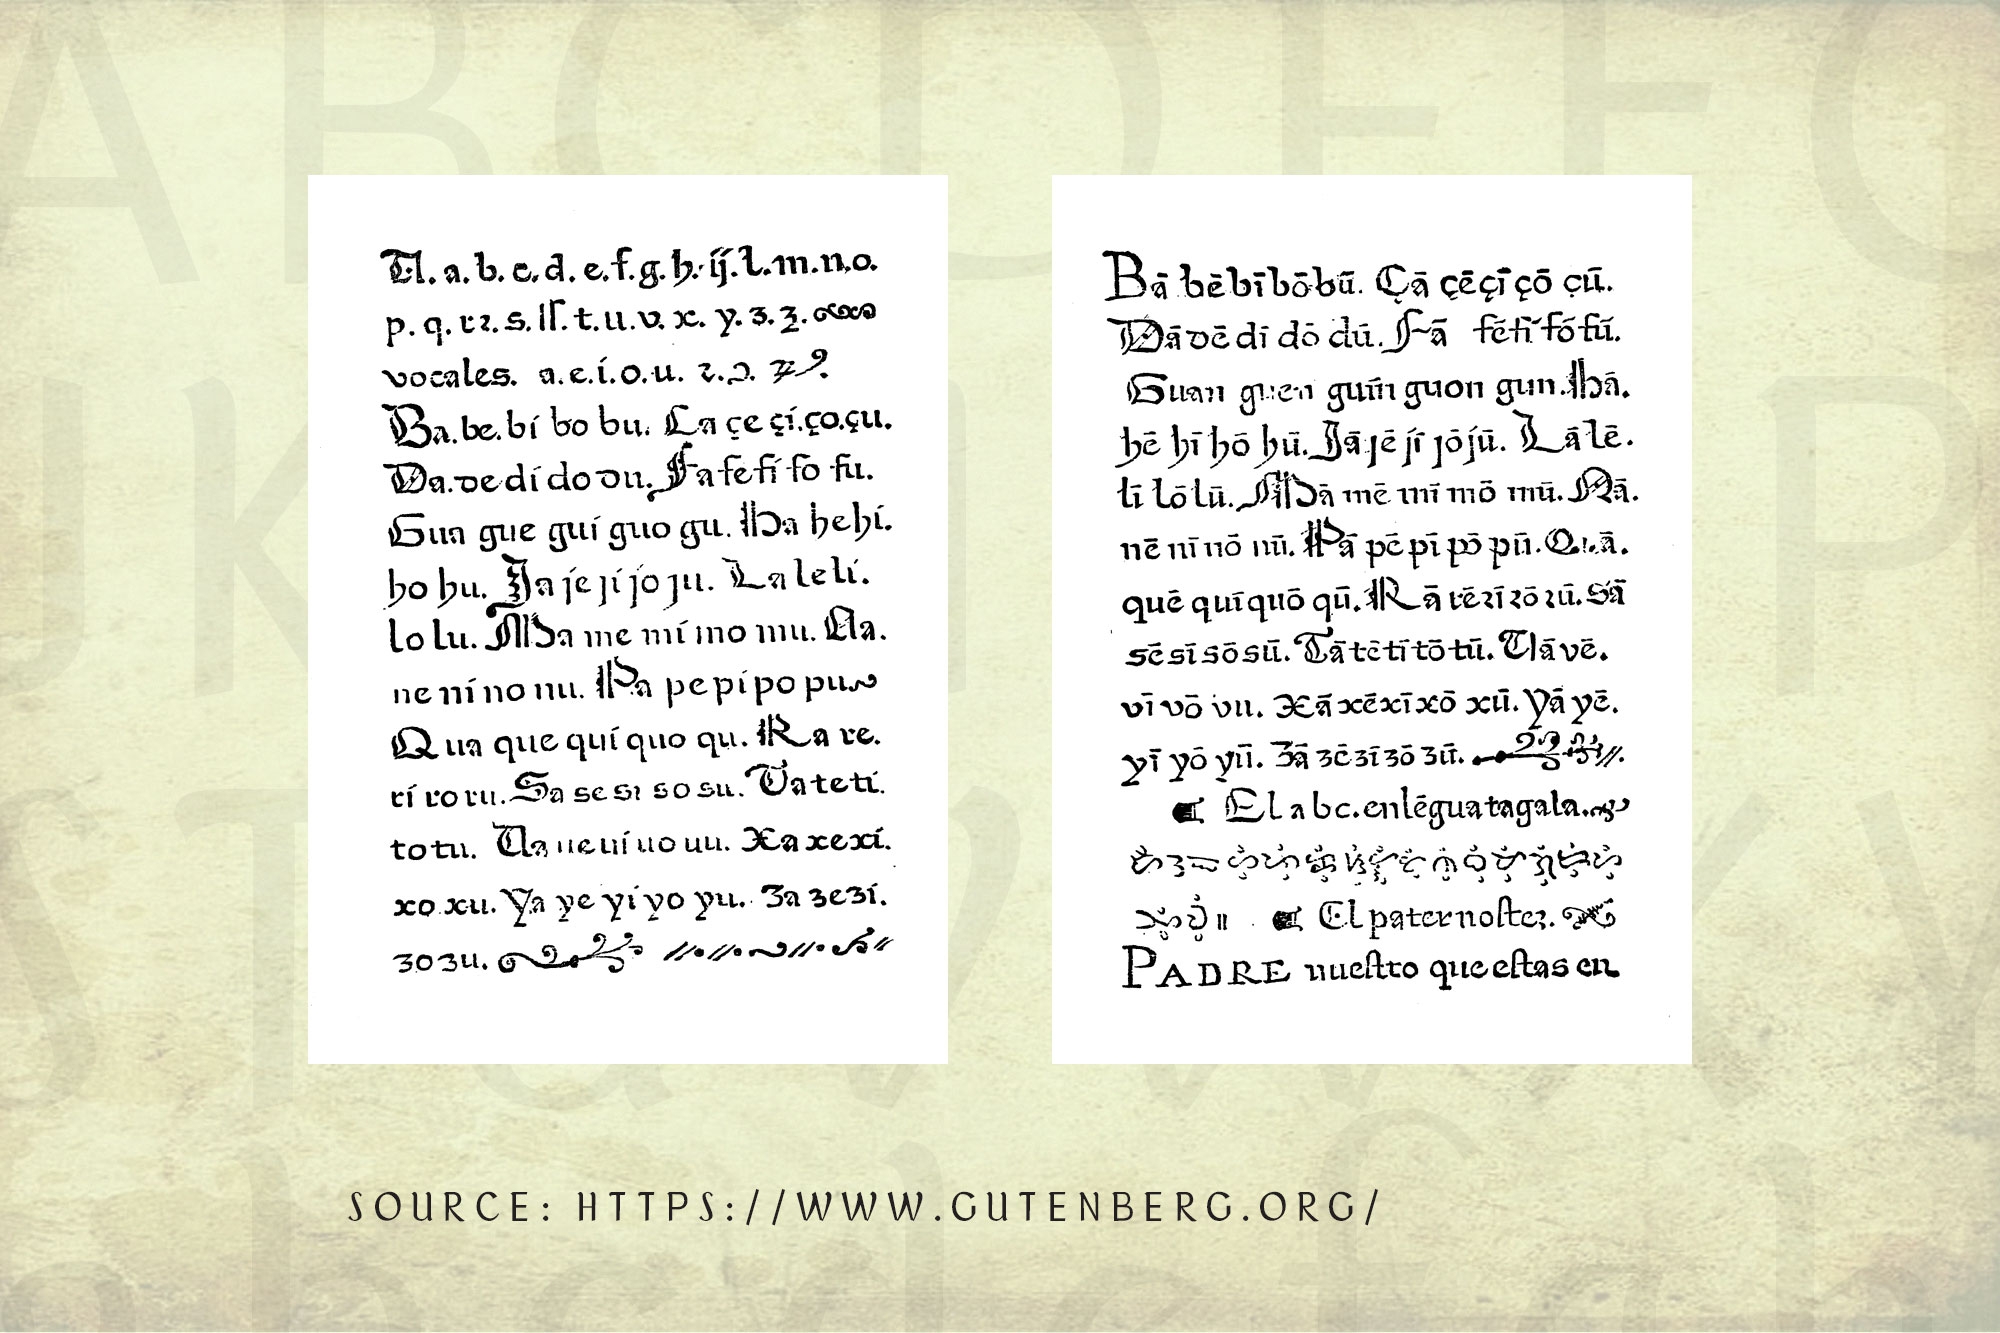 A. a. b. c. d. e. f. g. h. ij. l. m. n. o.
p. q. rꝛ. s. ſſ. t. u. v. x. y. z. ʒ.
vocales. a. e. i. o. u.
Ba. be. bi bo bu. Ca çe çi. ço. çu.
Da. de di do du. Fa fe fi fo fu.
Gua gue gui guo gu. Ha he hi.
ho hu. Ja je ji jo ju. La le li.
lo lu. Ma me mi mo mu. Na.
ne ni no nu. Pa pe pi po pu
Qua que qui quo qu. Ra re.
ri ro ru. Sa se si so su. Ta te ti.
to tu. Ua ue ui uo uu. Xa xe xi.
xo xu. Ya ye yi yo yu. Za ze zi.
zo zu.
Bā bē bī bō bū. Çā çē çī çō çū.
Dā dē dī dō dū. Fā fē fī fō fū.
Guan guen guin guon gun. Hā.
hē hī hō hū. Jā jē jī jō jū. Lā lē.
lī lō lū. Mā mē mī mō mū. Nā.
nē nī nō nū. Pā pē pī pō pū. Quā.
quē quī quō qū. Rā rē ꝛī ꝛō ꝛū. Sā
sē sī sō sū. Tā tē tī tō tū. Uā vē.
vī vō vu. Xā xē xī xō xū. Yā yē.
yī yō yū. Zā zē zī zō zū.
El abc. en lēgua tagala.
El pater noſteꝛ.
PADRE nueſtro que eſtas en
SOURCE: HTTPS://WWW.GUTENBERG.ORG/